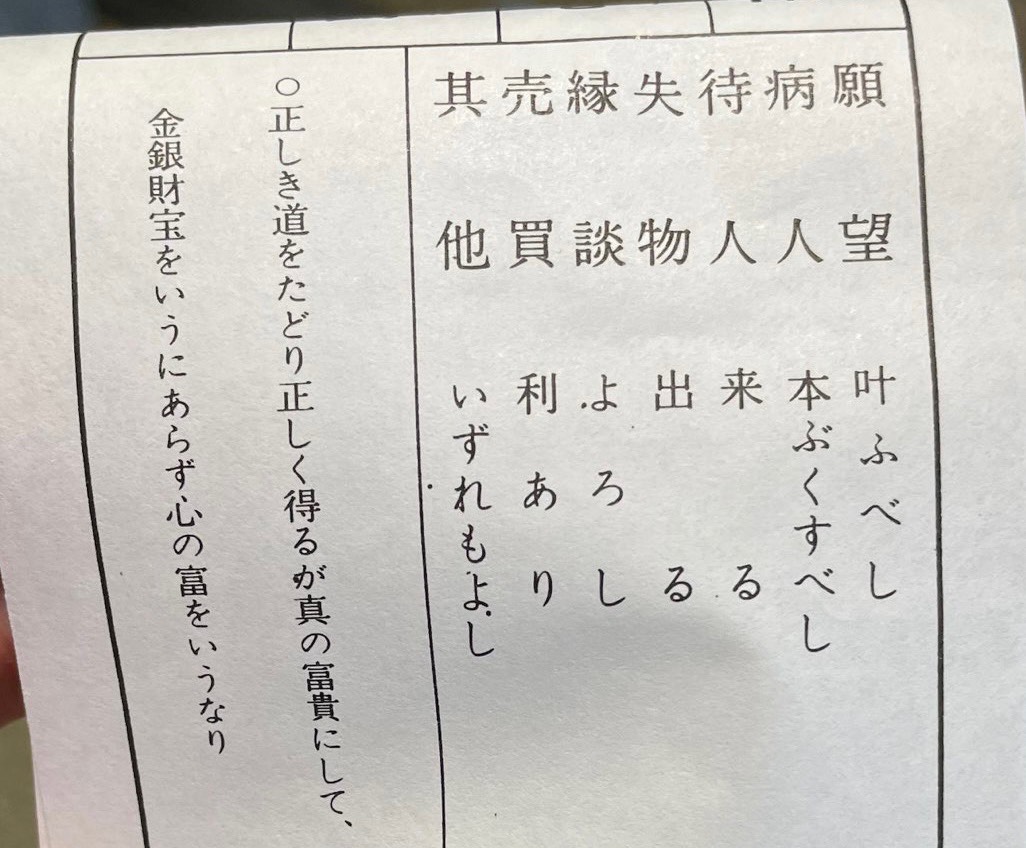 願望 叶ふべし
病人 本ぶくすべし
待人 来る
失物 出る
縁談 よろし
売買 利あり
其他 いずれもよし
○正しき道をたどり正しく得るが真の富貴にして、
金銀財宝をいうにあらず心の富をいうなり